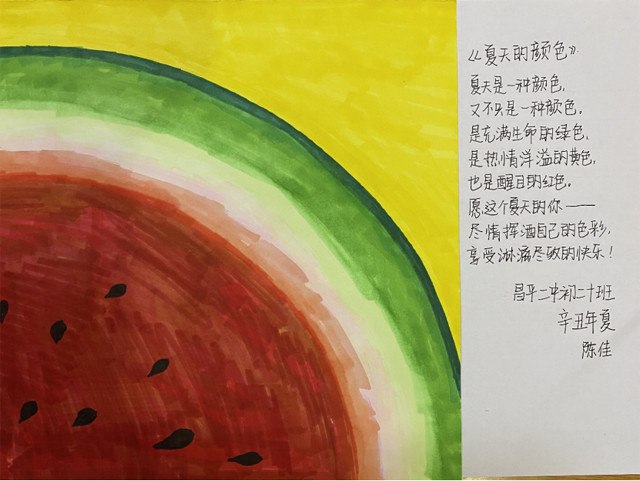 《夏天的颜色》
夏天是一种颜色，
又不只是一种颜色。
是充满生命的绿色，
是热情洋溢的黄色，
也是醒目的红色。
愿这个夏天的你——
尽情挥洒自己的色彩，
享受淋漓尽致的快乐！
昌平二中初二十班
辛丑年夏
陈佳